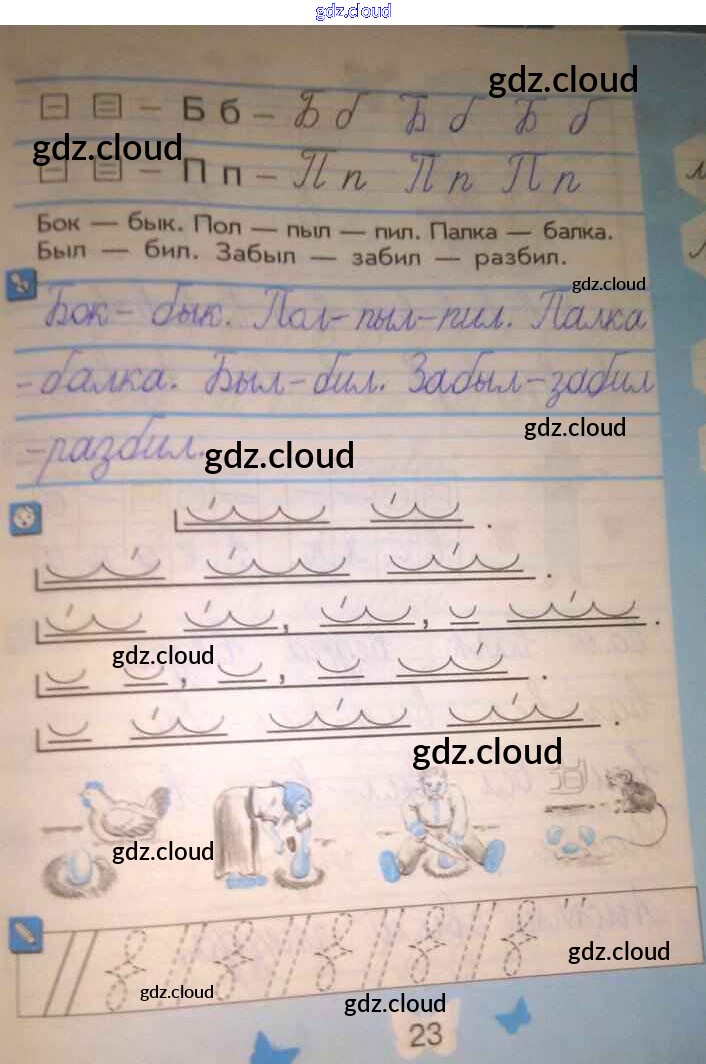 gdz.cloud
gdz.cloud
— Б б — Б б Б б Б б
gdz.cloud
— П п — П п П п П п
Бок — бык. Пол — пыл — пил. Палка — балка.
Был — бил. Забыл — забил — разбил.
gdz.cloud
Бок – бык. Пол – пыл – пил. Палка
– балка. Был – бил. Забыл – забил
gdz.cloud
– разбил.
gdz.cloud
gdz.cloud
gdz.cloud
gdz.cloud
gdz.cloud
gdz.cloud
gdz.cloud
23